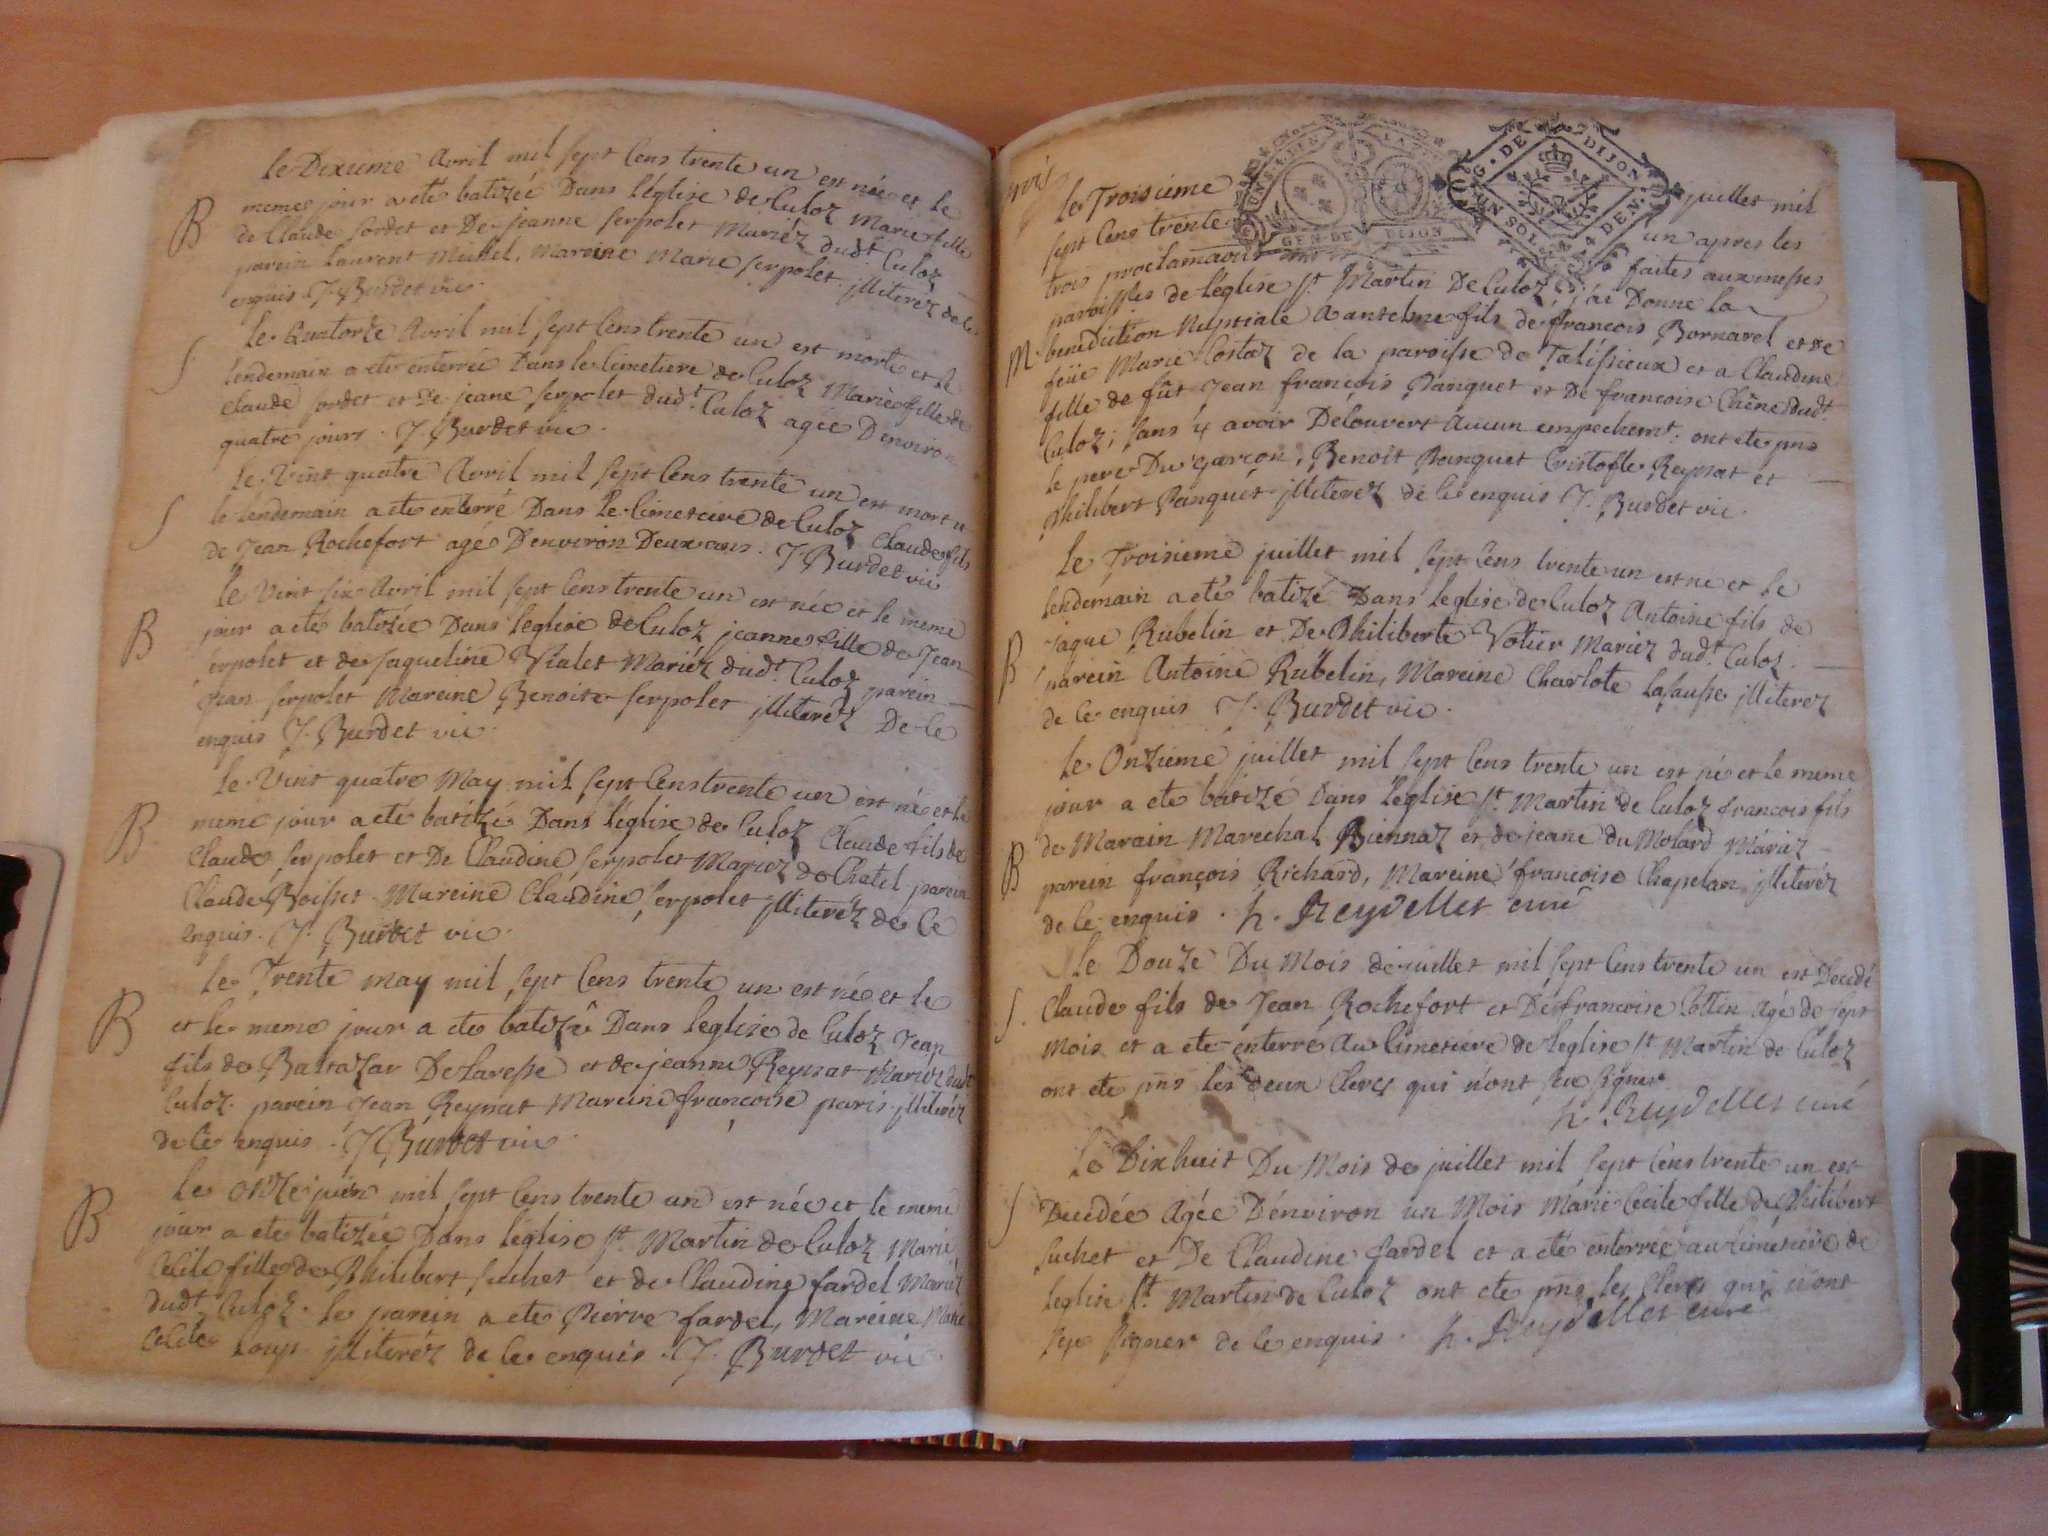 le Dixieme Avril mil sept Cens trente un est née et le
B memes jour a eté batizée Dans l'église de Culoz Marie fille
de Claude sordet et De jeanne serpolet Mariéz dudt Culoz
parein laurent Mistel, Mareine Marie serpolet illiteréz de ce
enquis J. Burdet vic.
le Quatorze Avril mil sept Cens trente un est morte et le
S lendemain a eté enterrée Dans le Cimetiere de Culoz Marie fille de
Claude sordet et De jeane serpolet dudt Culoz agée D'environ
quatre jours. J. Burdet vic.
le Vint quatre Avril mil sept Cens trente un est mort et
S le lendemain a eté enterré Dans le Cimetiere de Culoz Claude fils
de Jean Rochefort agé D'environ Deux ans. J. Burdet vic
le Vint six Avril mil sept Cens trente un est née et le meme
B jour a eté batizée Dans l'eglise de Culoz jeanne fille de Jean
serpolet et de Jaqueline Vialet Mariéz dudt Culoz parein
Jean serpolet Mareine Benoite serpolet illiteréz De ce
enquis J. Burdet vic.
le Vint quatre May mil sept Cens trente un est né et le
B meme jour a eté batizé Dans l'église de Culoz Claude fils de
Claude serpolet et De Claudine serpolet Mariéz de Chatel parein
Claude Boisset Mareine Claudine serpolet illiteréz de ce
enquis. J. Burdet vic.
le Trente may mil sept Cens trente un est né et le
B et le meme jour a ete batizé Dans l'eglise de Culoz Jean
fils de Baltazar Delavesse et de jeanne Reynat Mariéz dudt
Culoz. parein Jean Reynat Mareine francoise paris illiteréz
de ce enquis. J. Burdet vic.
le Onze juin mil sept Cens trente un est née et le meme
B jour a ete batizée Dans l'église St. Martin de Culoz Marie
Cecile fille de Philibert suchet et de Claudine fardel Mariéz
dudt Culoz. le parein a ete Pierre fardel, Mareine Marie
Cecile Loup illiteréz de ce enquis. J. Burdet vic
le Troisieme juillet mil
sept Cens trente un apres les
trois proclamations faites aux messes
paroissles de l'église St. Martin De Culoz, j'ai Donne la
M. benediction Nuptiale a antelme fils de francois Bornarel et de
feüe Marie Costaz de la paroisse de Talissieux et a Claudine
fille de fût Jean francois Panquet et De francoise Chêne dudt
Culoz; sans y avoir Decouvert Aucun empechemt. ont ete pns
le pere Du garcon, Benoit Panquet Cristofle Reynat et
Philibert Panquet illiteréz de ce enquis J. Burdet vic.
le Troisieme juillet mil sept Cens trente un est ne et le
lendemain a eté batizé Dans l'eglise de Culoz Antoine fils de
B jaque Rubelin et De Philiberte Votier Mariéz dudt. Culoz.
parein Antoine Rubelin, Mareine Charlote lasausse illiteréz
de ce enquis J. Burdet vic.
le Onzieme juillet mil sept Cens trente un est né et le meme
jour a ete batizé Dans l'église St. Martin de Culoz francois fils
B de Marain Marechal Biennaz et de jeane du Molard Mariéz
parein francois Richard, Mareine francoise Chapelan illiteréz
de ce enquis. h. Reydellet curé
le Douze Du Mois de juillet mil sept Cens trente un est Decedé
S. Claude fils de Jean Rochefort et De francoise Cottin Agé de sept
mois et a ete enterré Au Cimetiere de l'eglise St. Martin de Culoz
ont ete pns les deux Clercs qui n'ont seu signer
h. Reydellet curé
le Dixhuit Du Mois de juillet mil sept Cens trente un est
S Decedée Agée D'environ un Mois Marie Cecile fille de Philibert
suchet et De Claudine fardel et a eté enterrée au Cimetiere de
l'eglise St. Martin de Culoz ont ete pns les Clercs qui n'ont
seu signer de ce enquis. h. Reydellet curé
G. DE DIJON
UN SOL 4 DEN.
GEN DE DIJON